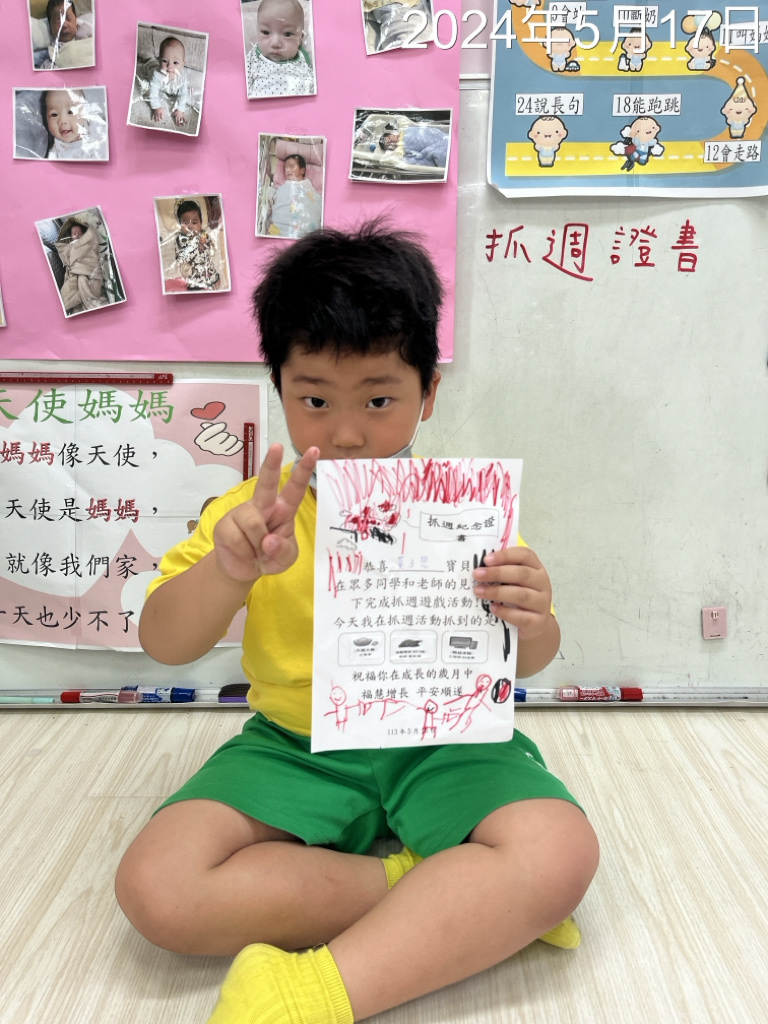 2024年5月17日
叫媽媽
24說長句
18能跑跳
12會走路
抓週證書
天使媽媽
媽媽像天使，
天使是媽媽，
就像我們家，
一天也少不了
抓週紀念證
書
恭喜 寶貝
在眾多同學和老師的見
下完成抓週遊戲活動!
今天我在抓週活動抓到的是
祝福你在成長的歲月中
福慧增長 平安順遂
113年5月